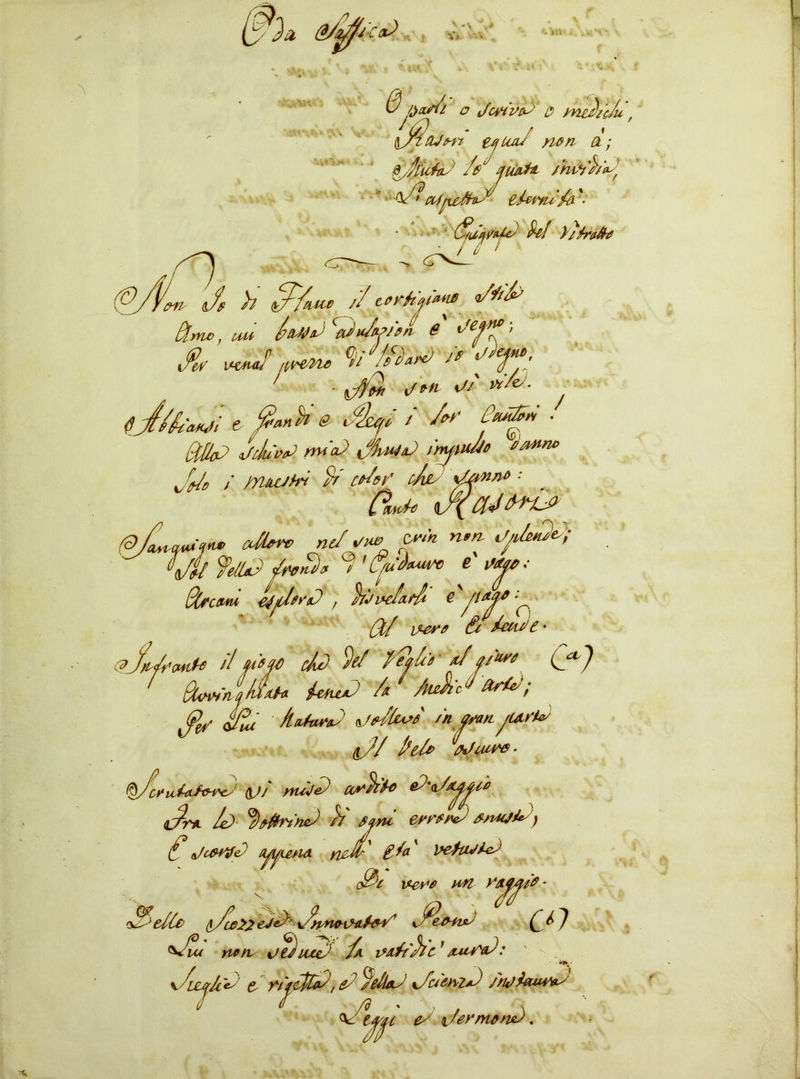 Oda Saffica
O parli o scriva o medichi,
Rasori egual non à;
Muta lo guata invidia,
L'aspetta eternità.
Epigrafe del ritratto
Non Io di Flauo il cortigiano stile
Amo, cui bassa adulazion è segno;
Per venal prezzo di lodare io sdegno,
Non son sì vile.
Abbiansi e grandi e Regi i lor Cantori:
Alla schiva mia Musa impulso danno
Solo i maestri di color che sanno:
Canto Rasori.
Sanguigno alloro nel suo crin non splende;
Sol della fronda d'Epidauro è vago:
Arcani esplora, disvelarli è pago:
Al vero Ei tende.
Infranto il giogo che del Veglio al giuro (a)
Avvinghiata tenea la Medic' Arte;
Per Lui Natura sollevò in gran parte
Il velo oscuro.
Scrutatore si mise ardito e saggio
Tra le dottrine d'ogni errore onuste,
E scorse appena nell' età vetuste
Di vero un raggio.
Dello Scozzese Innovator Peone (b)
Lui non seduce la vatidic' aura:
Sceglie e rigetta, e della Scienza instaura
Leggi e Sermone.